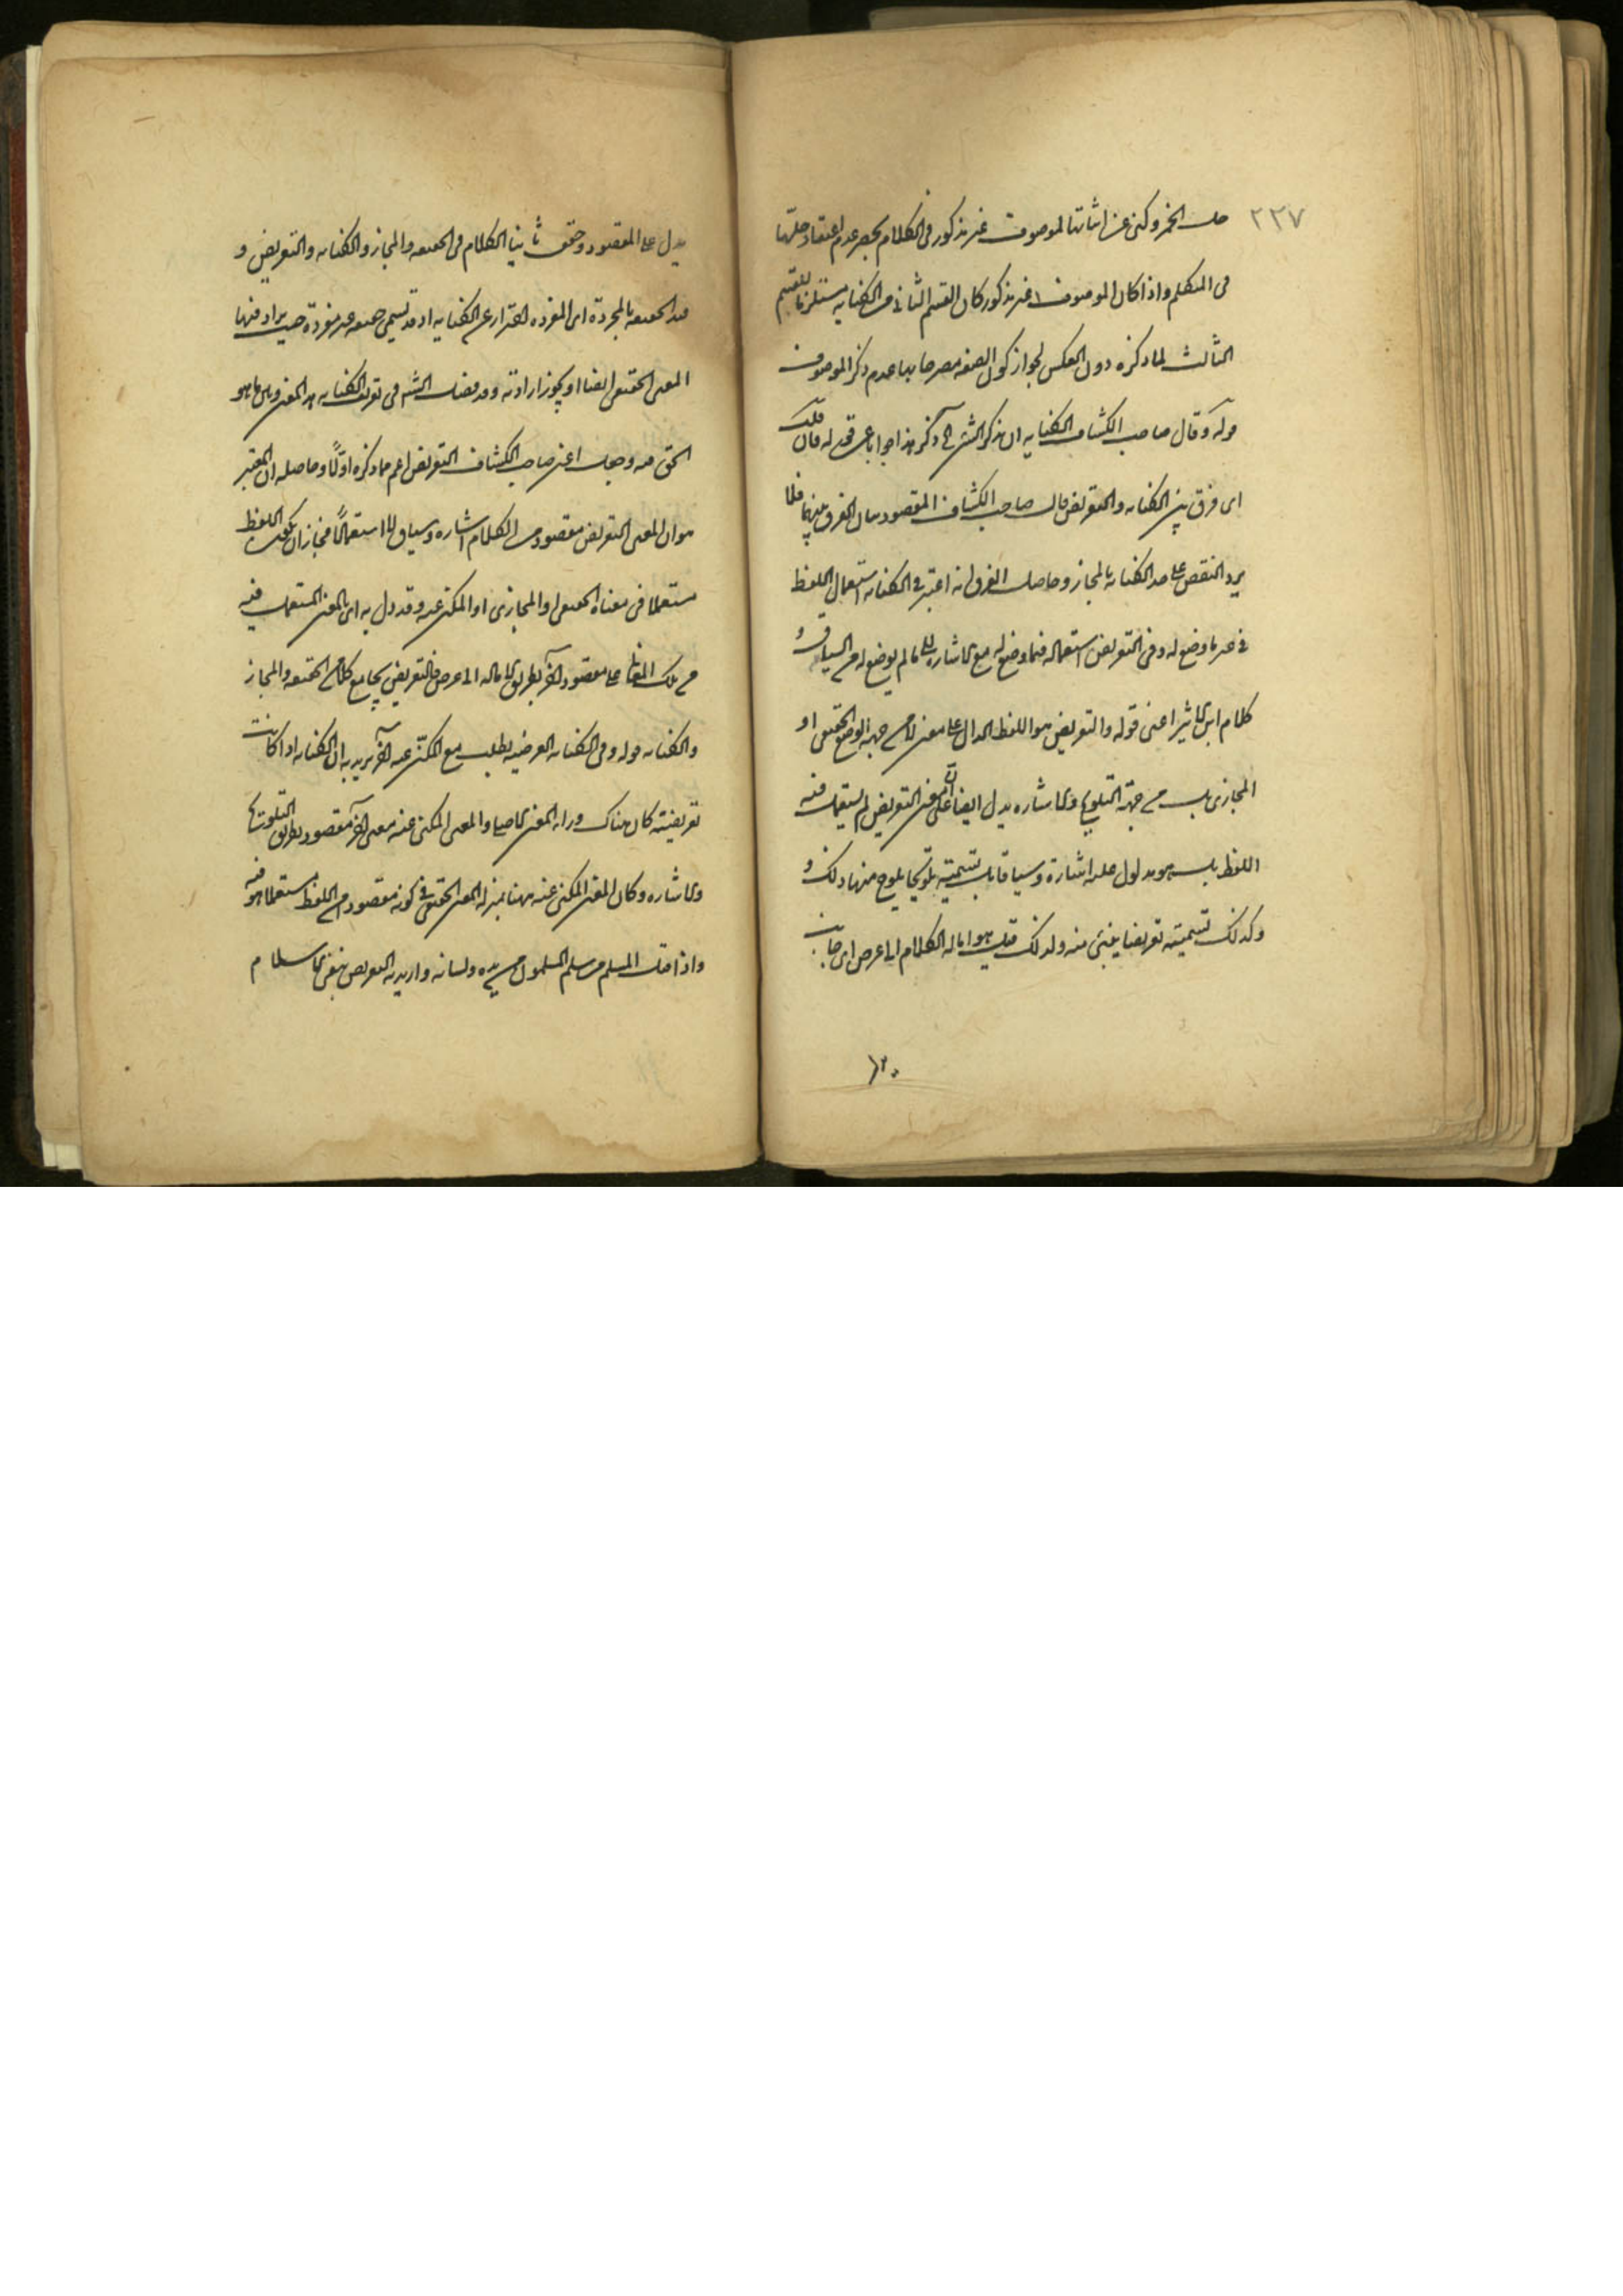 ٢٢٧
حل الخمر وكنى عن اثباتها لموصوف غير مذكور فى الكلام بحصر عدم اعتقاد حلّها
فى المتكلم واذا كان الموصوف غير مذكور كان القسم الثانى من الكنايه مستلزما للقسم
الثالث لما ذكره دون العكس لجواز كون الصفه مصرحا بها مع عدم ذكر الموصوف
قوله وقال صاحب الكشاف الكنايه ان تذكر الشئ الى آخره هذا جوابا عن قوله فان قلت
اى فرق بين الكنايه والتعريض قال صاحب الكشاف المقصود بيان الفرق بينهما فلا
يرد النقض على حد الكنايه بالمجاز وحاصل الفرق انه اعتبر فى الكنايه استعمال اللفظ
فى غير ما وضع له وفى التعريض استعماله فيما وضع له مع الاشاره الى ما لم يوضع له من السياق و
كلام ابن الاثير اعنى قوله والتعريض هو اللفظ الدال على معنى لا من جهة الوضع الحقيقى او
المجازى بل من جهة التلويح والاشاره يدل ايضا على ان معنى التعريض لم يستعمل فيه
اللفظ بل هو مدلول عليه اشارة وسياقا بل تسميته تلويحا يلوح منها ذلك و
وكذلك تسميته تعريضا ينبئ عنه ولذلك قيل هو اماله الكلام الى عرض اى جانب
١٢٠
يدل على المقصود وحقق ثانيا الكلام فى الحقيقه والمجاز والكنايه والتعريض و
قيد الحقيقه بالمجردة اى المفرده احترازا عن الكنايه اذ قد تسمى حقيقه غير مفردة حيث يراد منها
المعنى الحقيقى ايضا او يجوز ارادته وقد فصل الشم فى تعريف الكنايه هذا المعنى وبين ما هو
الحق منه وجعل اعنى صاحب الكشاف التعريض اعم مما ذكره اوّلًا وحاصله ان المعتبر
هو ان المعنى التعريضى مقصود من الكلام اشاره وسياقا لا استعمالًا فجاز ان يكون اللفظ
مستعملا فى معناه الحقيقى او المجازى او المكنى عنه وقد دل به اى بالمعنى المستعمل فيه
من تلك المعانى على مقصود آخر بطريق الاماله الى عرض فالتعريض يجامع كلا من الحقيقه والمجاز
والكنايه قوله وفى الكنايه العرضيه يطلب مع المكنى عنه آخر يريد به ان الكنايه اذا كانت
تعريضيته كان هناك وراء المعنى الاصلى والمعنى المكنى عنه معنى آخر مقصود بطريق التلويح
والاشاره وكان المعنى المكنى عنه ههنا بمنزلة المعنى الحقيقى فى كونه مقصودا من اللفظ مستعملا هو فيه
واذا قيل المسلم من سلم المسلمون من يده ولسانه واريد به التعريض بنفى الاسلام